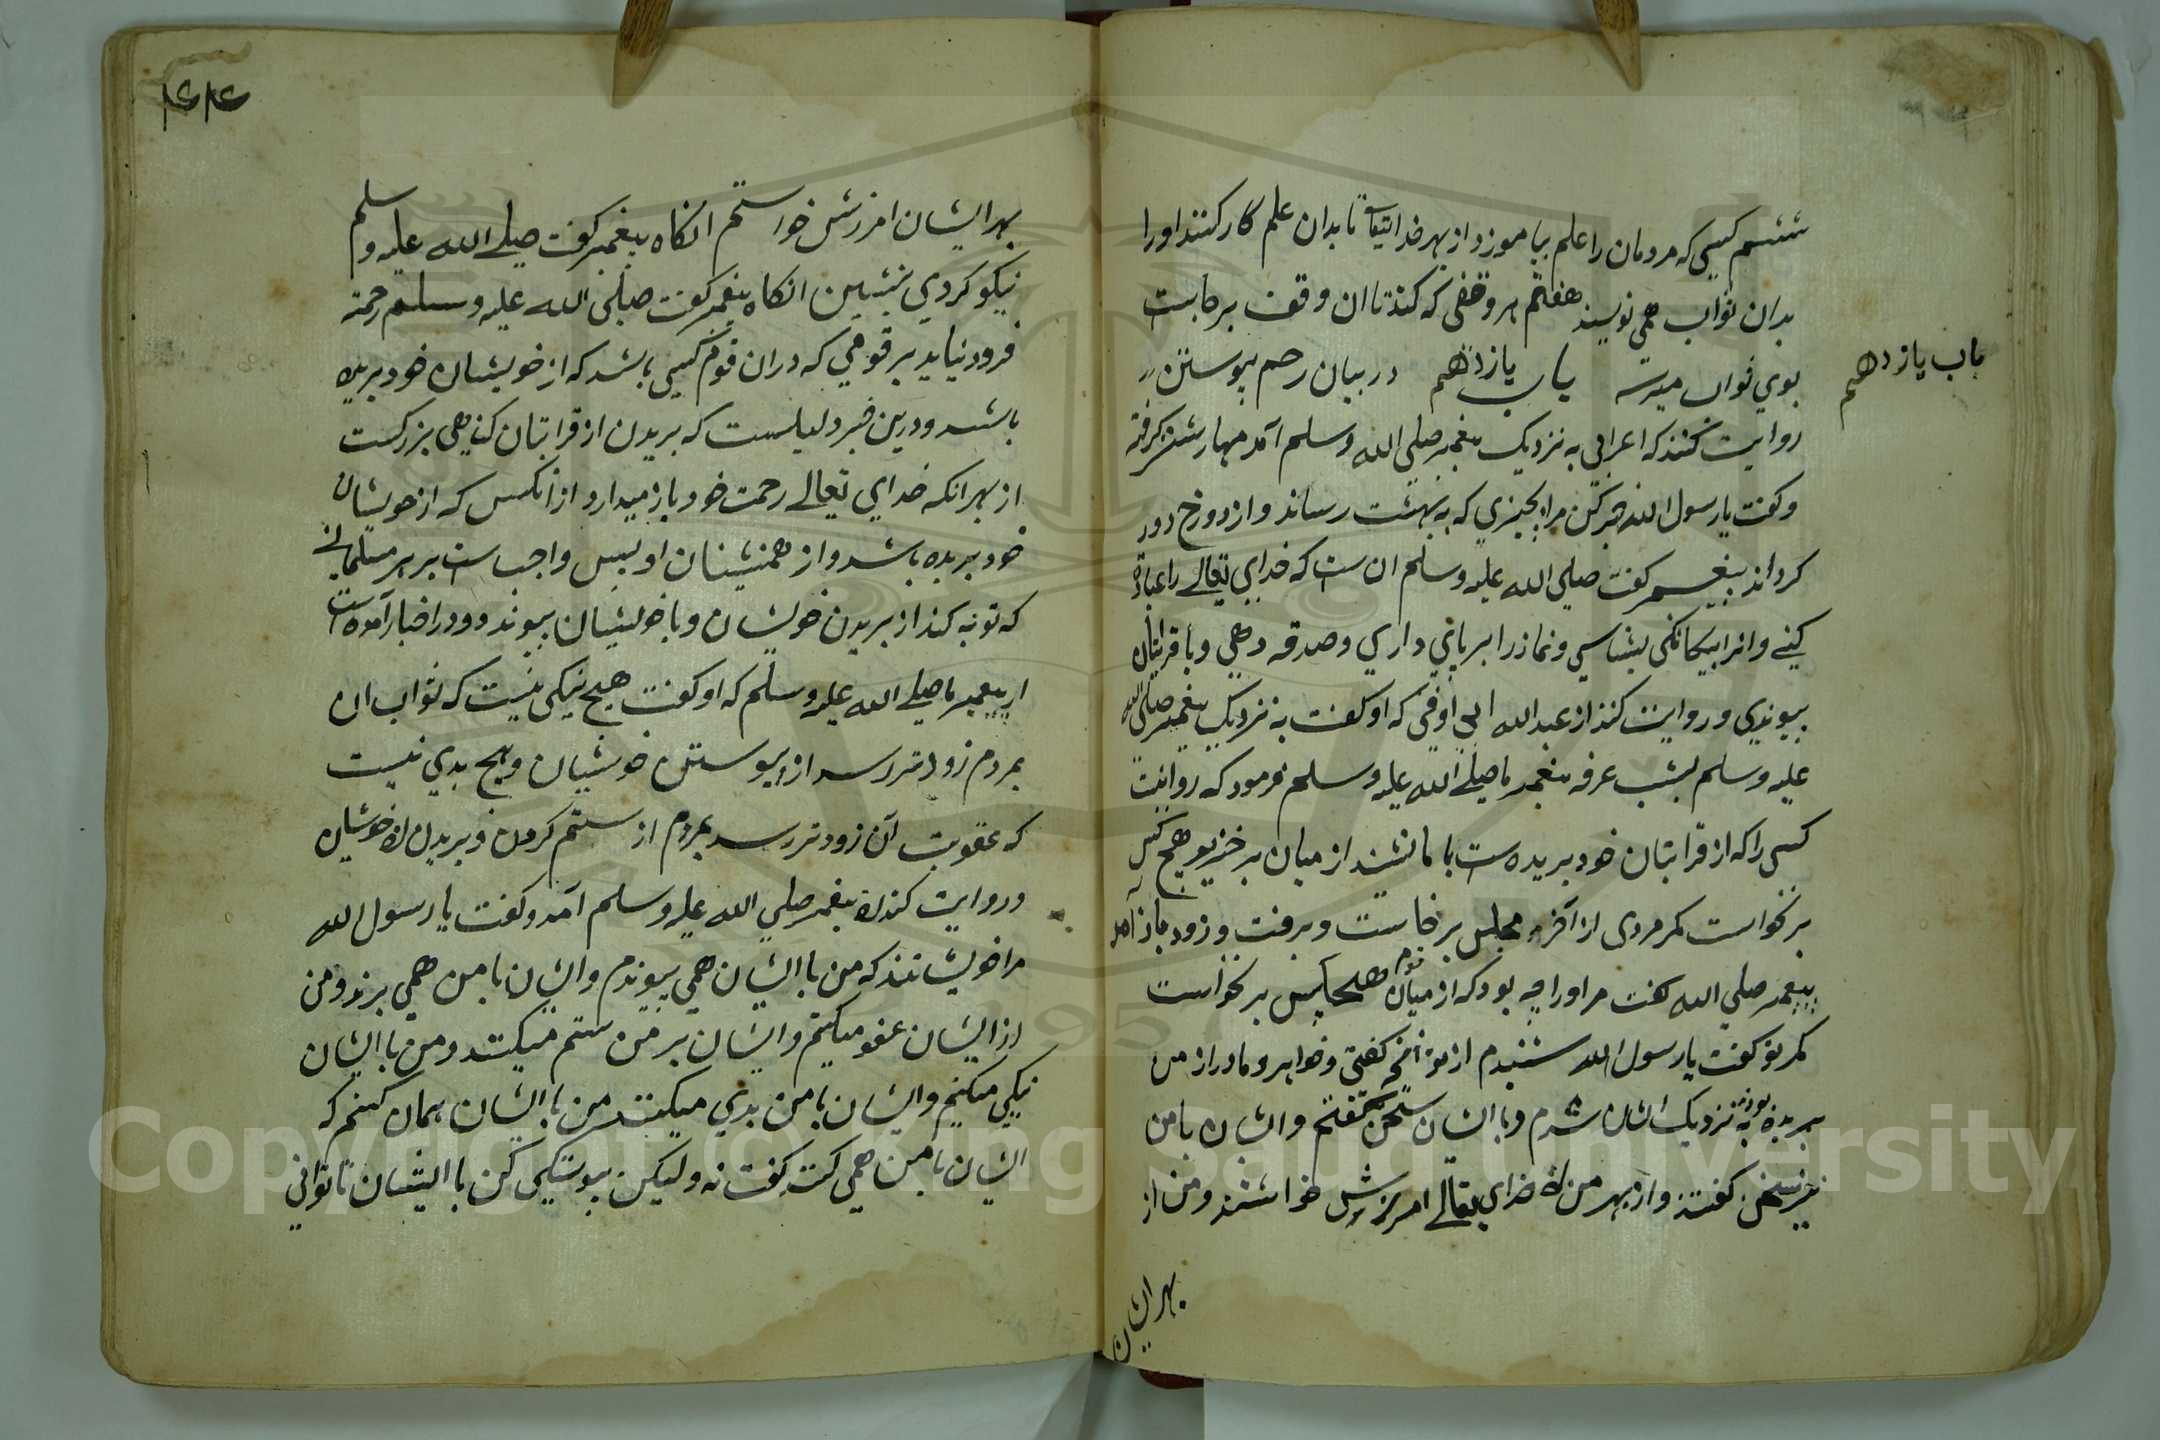 ششم کسی که مردمان را علم بیاموزد از بهر خدایتعا تا بدان علم کار کنند او را
بدان ثواب همی نویسند هفتم هر وقفی که کند تا ان وقف بر جایست
بوی ثواب میرسد باب یازدهم در بیان رحم پیوستن
باب یازدهم
روایت کنند که اعرابی به نزدیک پیغمبر صلی الله وسلم آمد مهار شتر گرفته
وکفت یا رسول الله خبر کن مرا بچیزی که به بهشت رساند و از دوزخ دور
کرداند پیغمبر کفت صلی الله علیه وسلم ان ست که خدای تعالے را عبادة
کنے وانرا بیکانکی بشناسی ونماز را برپای داری وصدقه دهی وبا قرابتان
بپیوندی وروایت کنند از عبد الله ابی اوفی که او کفت به نزدیک پیغمبر صلی الله
علیه وسلم بشب عرفه پیغمبر ما صلے الله علیه وسلم فرمود که روانیت
کسی را که از قرابتان خود بریده ست با ما نشیند از میان بر خیزیو هیچ کس
بر نخواست مکر مردی از آخر مجلس بر خاست وبرفت وزود باز آمد
پیغمبر صلی الله کفت مر او را چه بود که از میان قوم هیچکس بر نخواست
مکر تو کفت یا رسول الله شنیدم از تو آنچه کفتی وخواهر ومادر از من
بریده بودند به نزدیک ایشان شدم وبا ایشان سخن کفتم وایشان با من
نیز سخن کفتند واز بهر من از خدای تعالے امرزش خواستند ومن از
بهر ایشان
۱۴۱۴
بهر ایشان امرزش خواستم انکاه پیغمبر کفت صلے الله علیه وسلم
نیکو کردی بنشین انکاه پیغمبر کفت صلی الله علیه وسلم رحمة
فرود نیاید بر قومی که دران قوم کسی باشد که از خویشان خود بریده
باشد ودرین خبر دلیلست که بریدن از قرابتان کناهی بزرکست
از بهر انکه خدای تعالے رحمت خود باز میدارد از انکس که از خویشان
خود بریده باشد واز همنشینان او پس واجب است بر هر مسلمانے
که توبه کند از بریدن خویشان وبا خویشان بپیوندد ودر اخبار آمده ست
از پیغمبر ما صلے الله علیه وسلم که او کفت هیچ نیکی نیست که ثواب ان
بمردم زودتر رسد از پیوستن خویشان وهیچ بدی نیست
که عقوبت آن زودتر رسد بمردم از ستم کردن وبریدن از خویشان
وروایت کنند از پیغمبر صلی الله علیه وسلم آمد وکفت یا رسول الله
مرا خویشانند که من با ایشان همی پیوندم وایشان با من همی برند ومن
از ایشان عفو میکنم وایشان بر من ستم میکنند ومن با ایشان
نیکی میکنم وایشان با من بدی میکنند من با ایشان همان کنم که
ایشان با من همی کنند کفت نه ولیکن پیوستکی کن با ایشان تا توانی
Copyright © King Saud University
1957